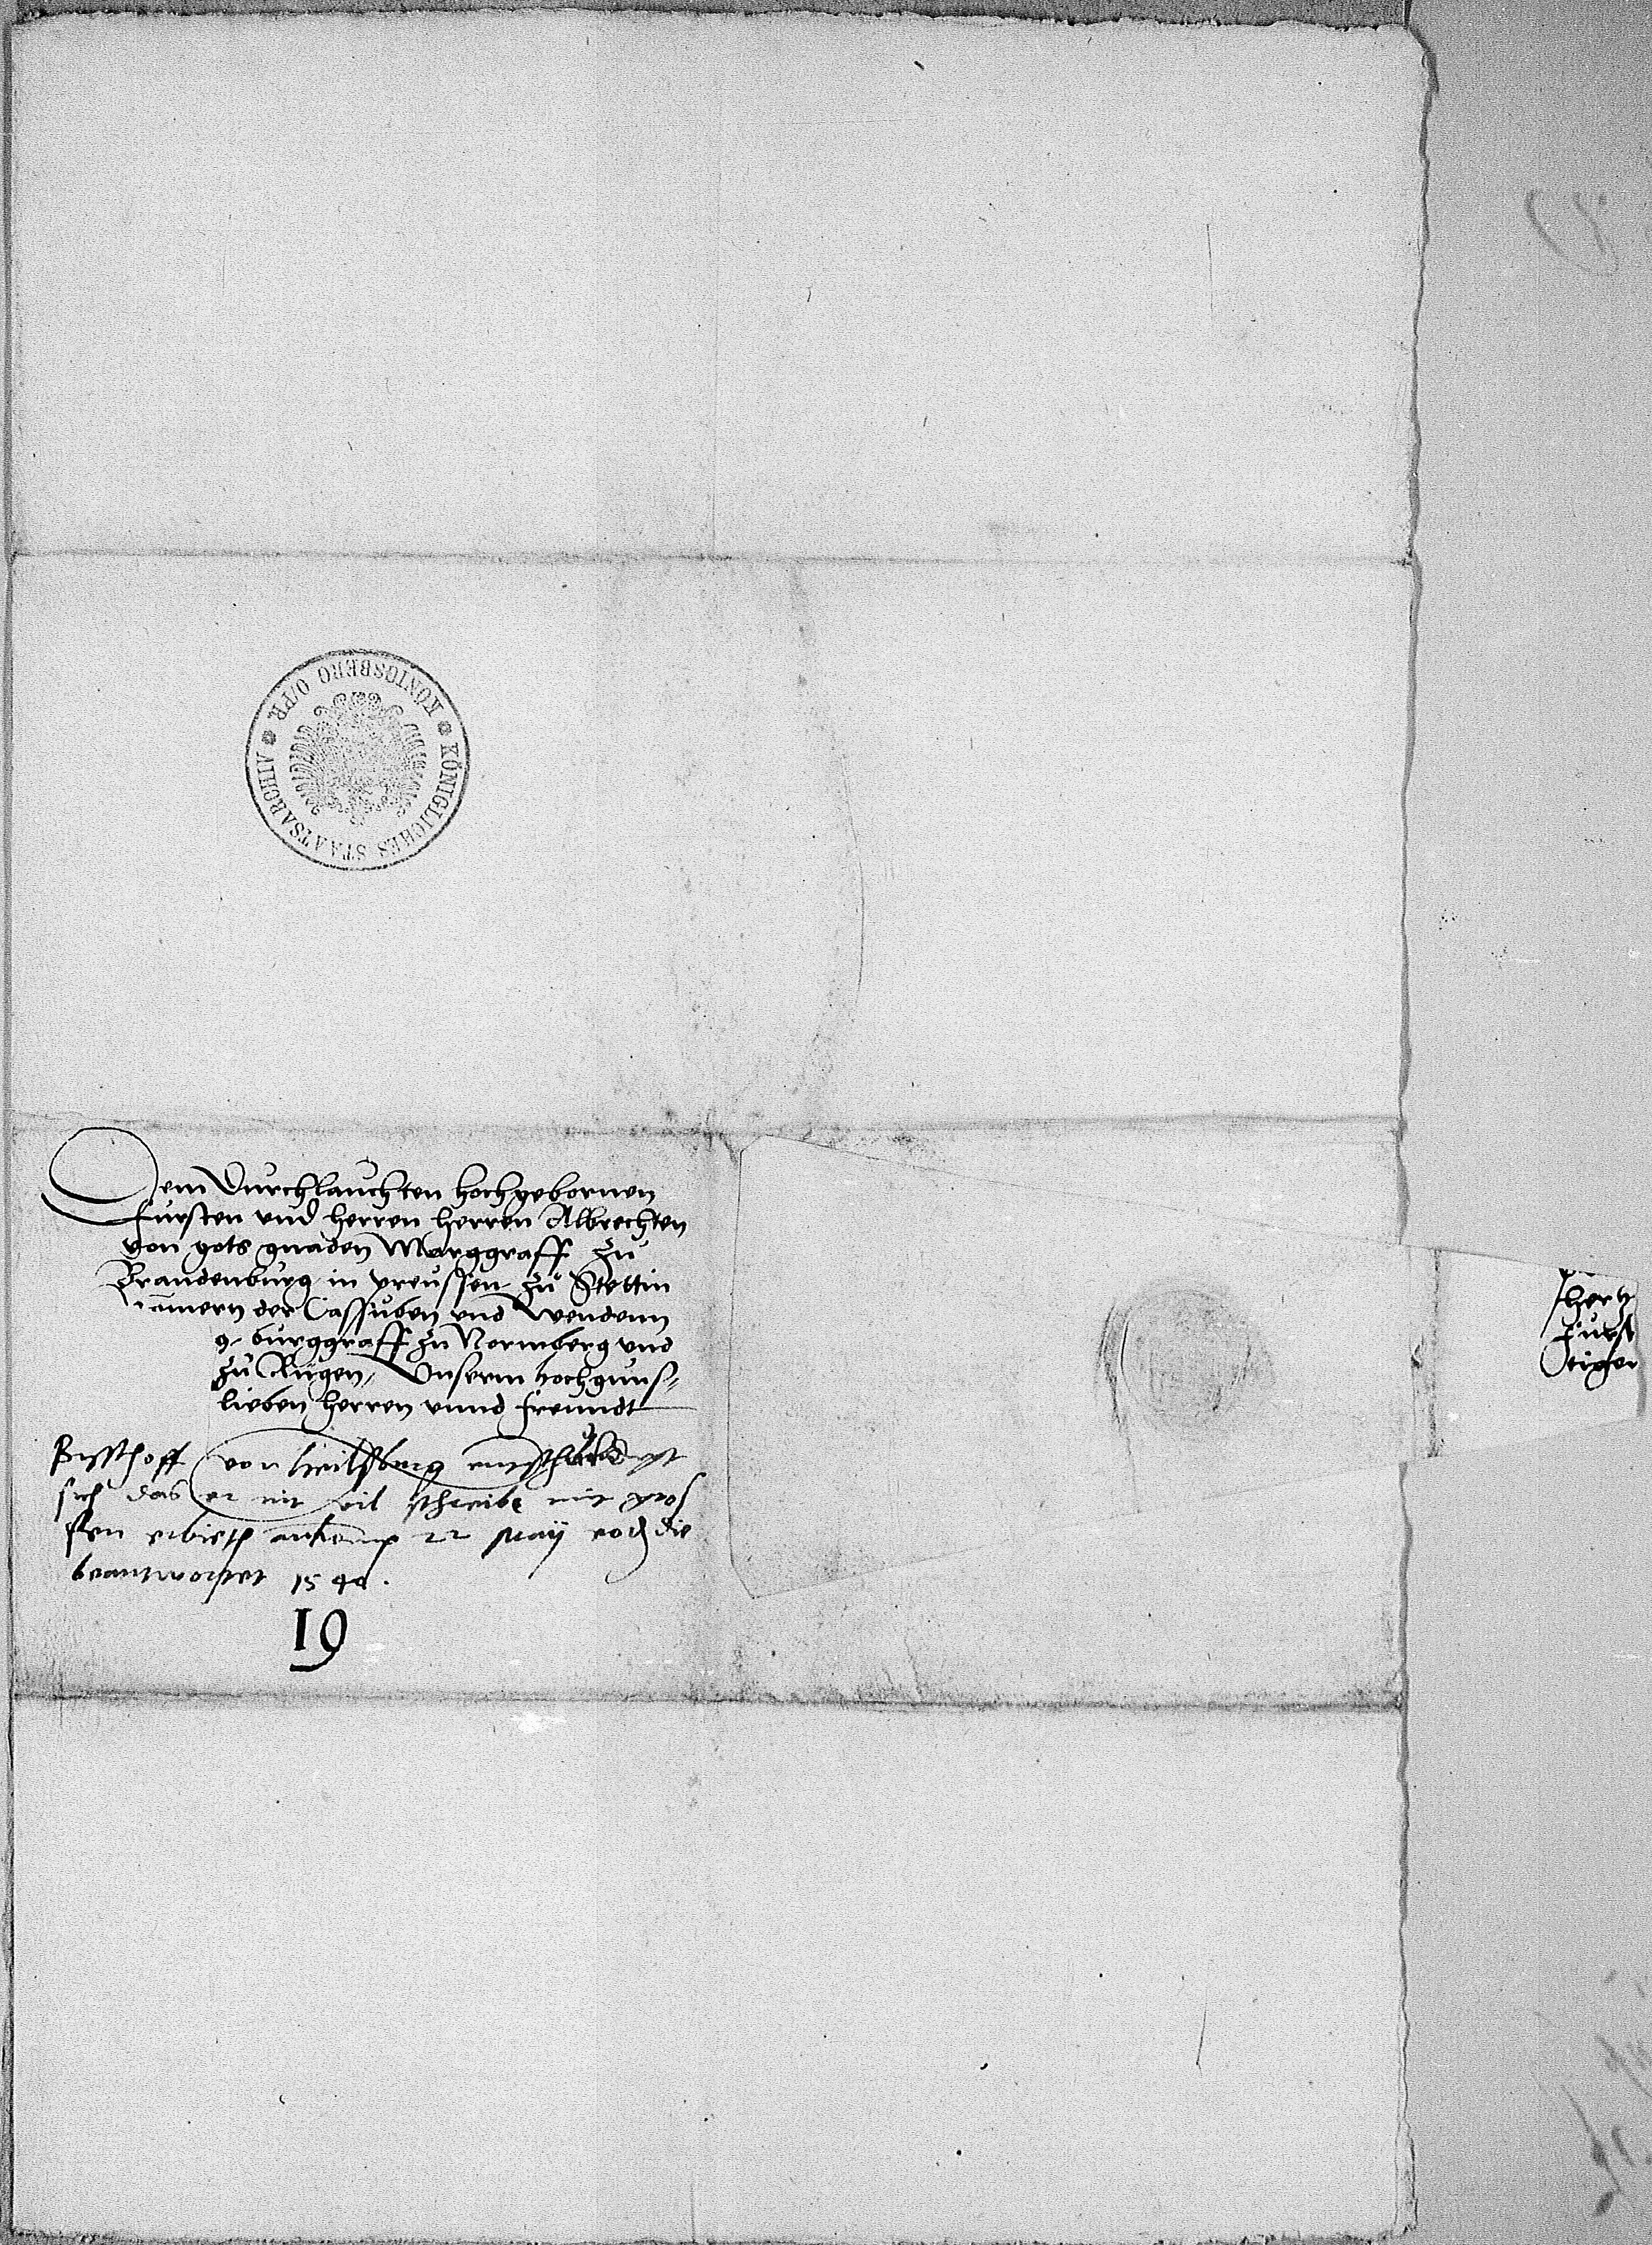 KÖNIGLICHES STAATSARCHIV
KÖNIGSBERG O/PR.
Dem Durchlauchten hochgebornen
fursten vnd herren herren Albrechten
von gots gnaden Marggraff zu
Brandenburg in preussen zu Stettin
mern der Cassuben vnd Wendenn
g burggraff zu Normberg vnd
zu Rugen, Vnserm hochguns
lieben herren vnnd freundt
hertz
Furst
tigen
Bisschoff von heilssberg entschuldigt
sich das er nit vil schreibe mit gros
sen erbieth 22 Maij die
beantwortet 1540.
19